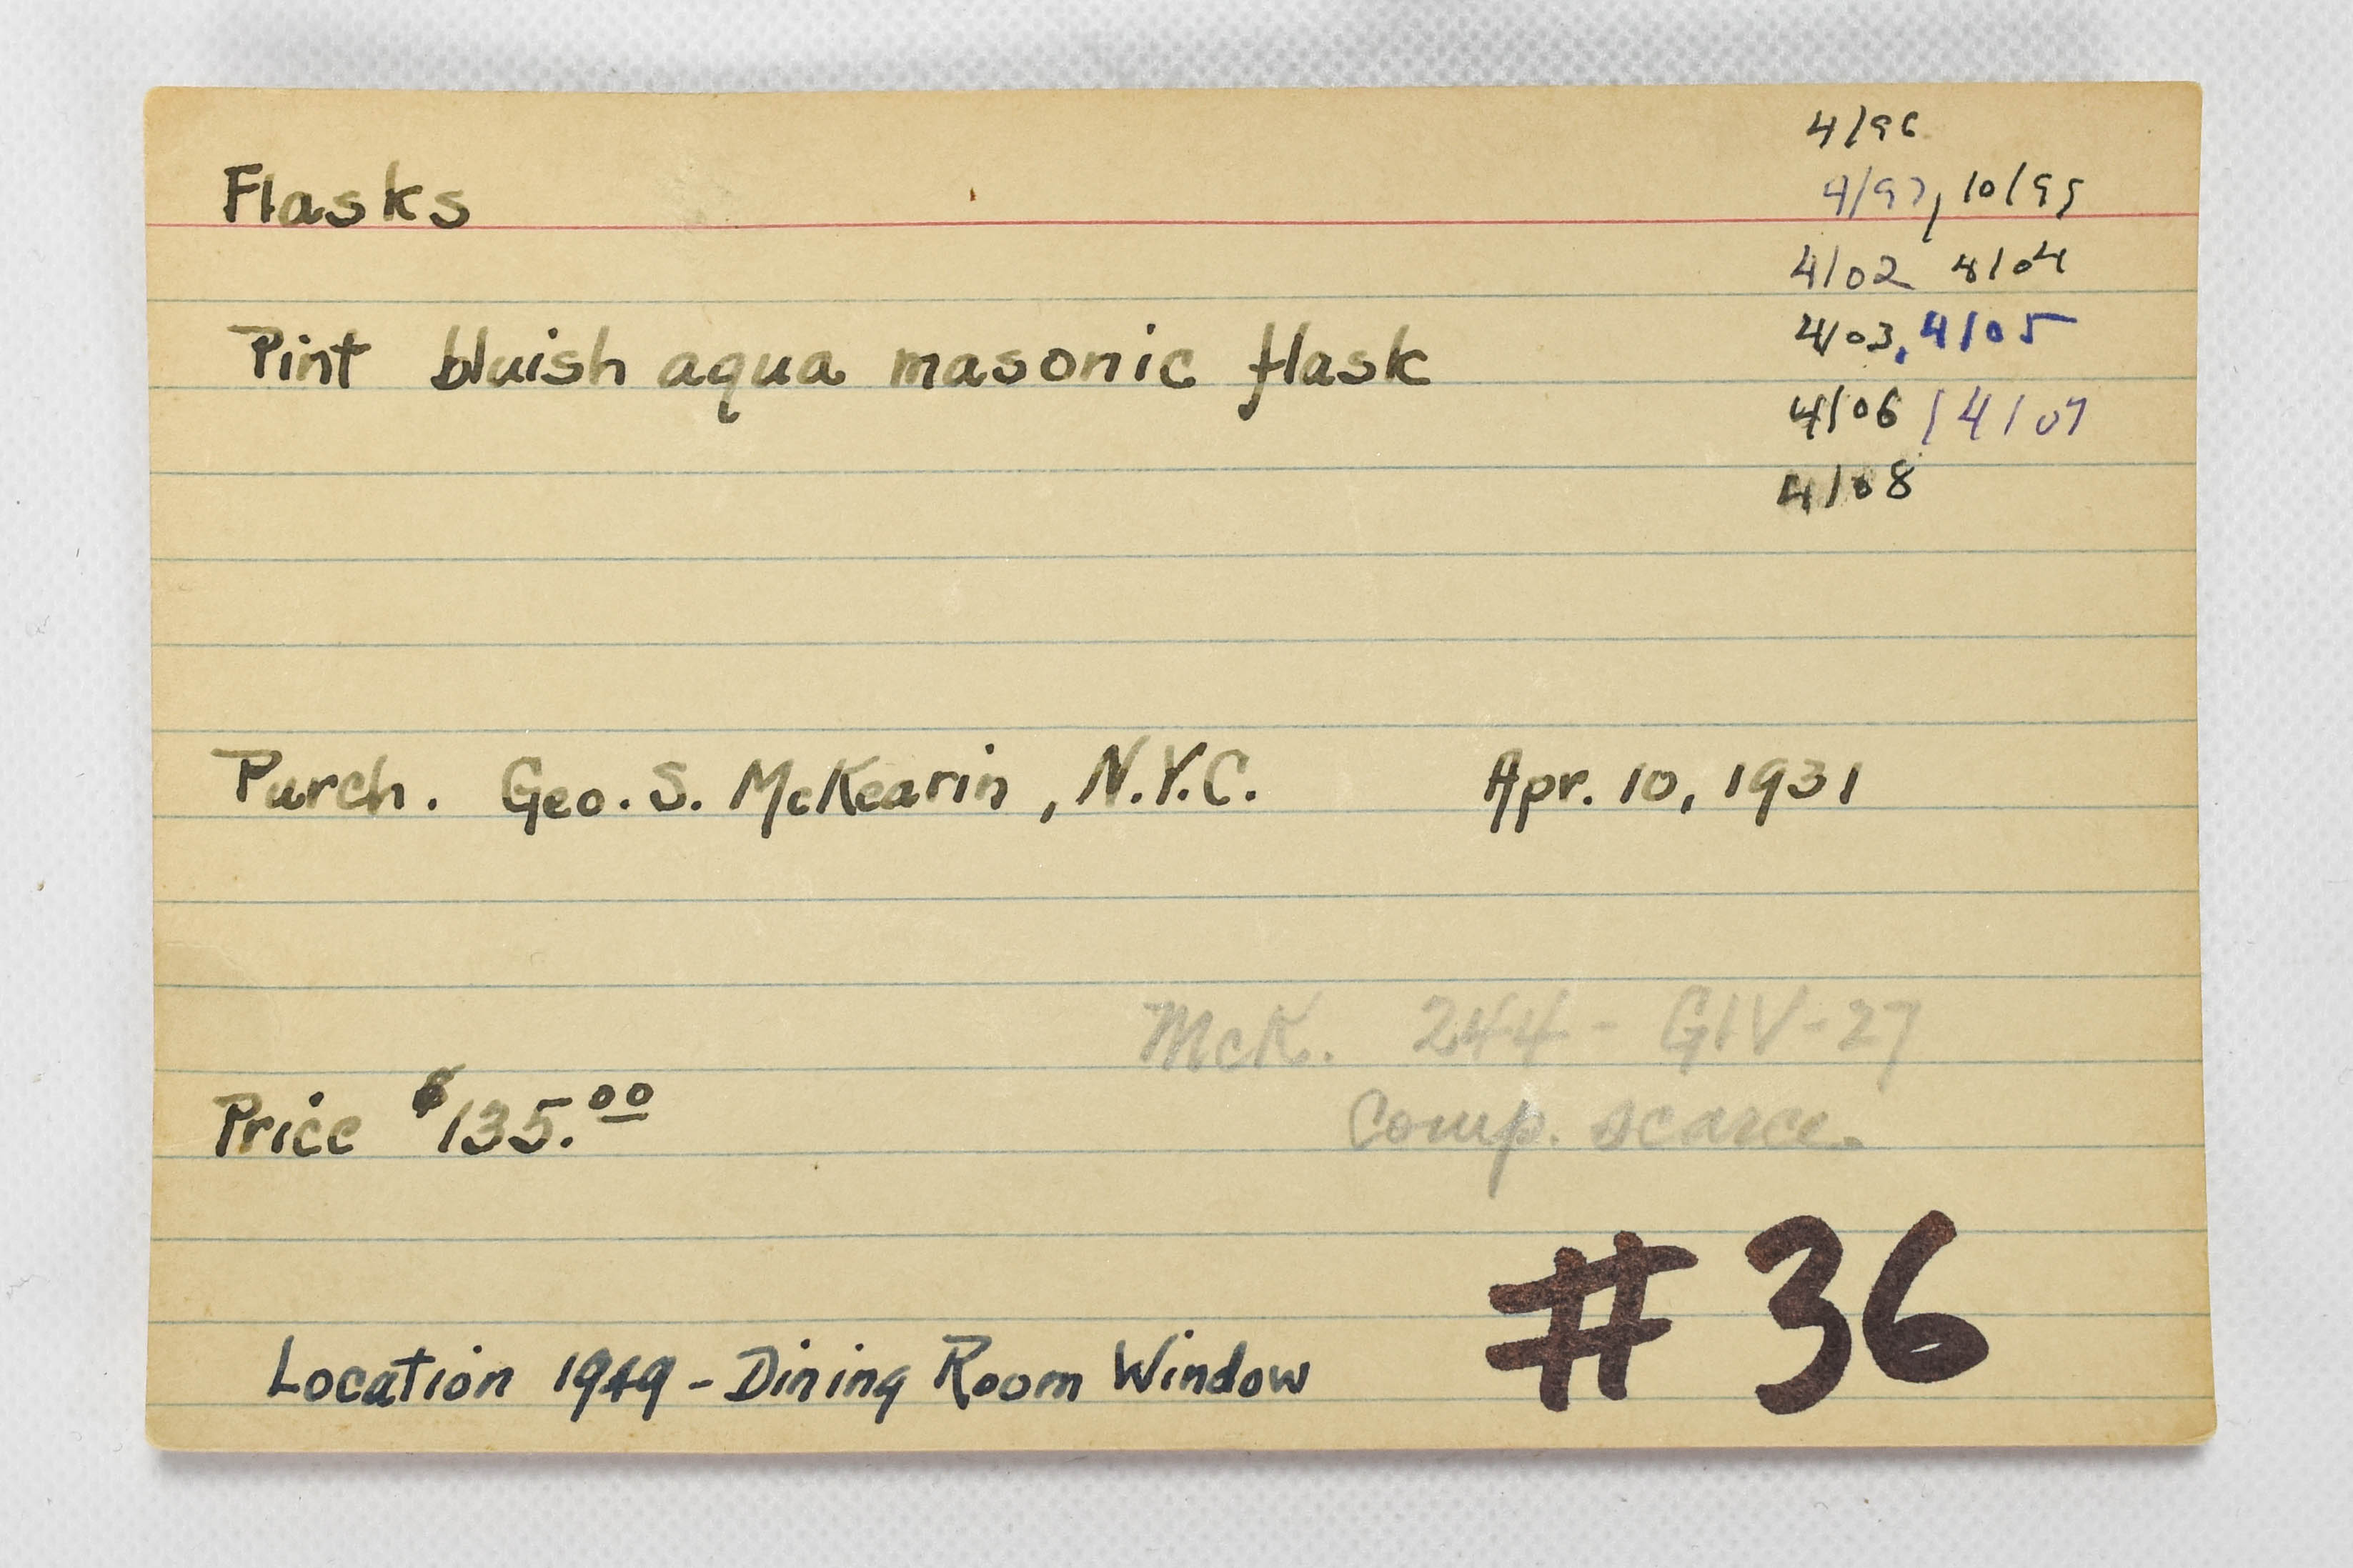 4/96
Flasks 4/97, 10/99
4/02 4/04
Pint bluish aqua masonic flask 4/03, 4/05
4/06 / 4/07
4/08
Purch. Geo. S. McKearin, N.Y.C. Apr. 10, 1931
McK. 244 - GIV-27
Price $135.00 Comp. scarce.
#36
Location 1949 - Dining Room Window